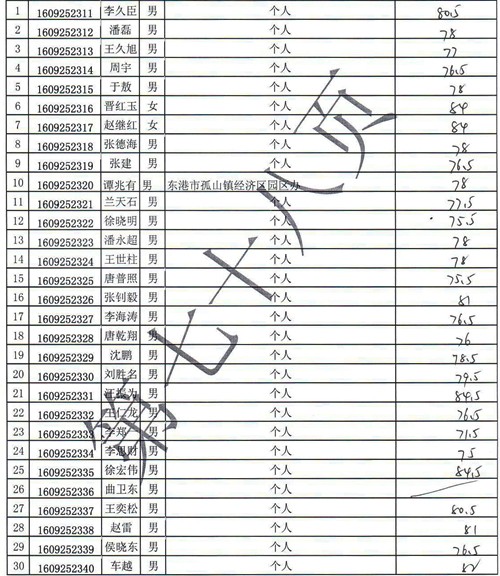 1 1609252311 李久臣 男 个人 80.5
2 1609252312 潘磊 男 个人 78
3 1609252313 王久旭 男 个人 77
4 1609252314 周宇 男 个人 76.5
5 1609252315 于敖 男 个人 78
6 1609252316 晋红玉 女 个人 84
7 1609252317 赵继红 女 个人 84
8 1609252318 张德海 男 个人 78
9 1609252319 张建 男 个人 76.5
10 1609252320 谭兆有 男 东港市孤山镇经济区园区办 78
11 1609252321 兰天石 男 个人 77.5
12 1609252322 徐晓明 男 个人 75.5
13 1609252323 潘永超 男 个人 78
14 1609252324 王世柱 男 个人 78
15 1609252325 唐普照 男 个人 75.5
16 1609252326 张钊毅 男 个人 81
17 1609252327 李海涛 男 个人 76.5
18 1609252328 唐乾翔 男 个人 76
19 1609252329 沈鹏 男 个人 78.5
20 1609252330 刘胜名 男 个人 79.5
21 1609252331 汪振为 男 个人 84.5
22 1609252332 王仁龙 男 个人 76.5
23 1609252333 李郑一 男 个人 71.5
24 1609252334 李思财 男 个人 75
25 1609252335 徐宏伟 男 个人 84.5
26 1609252336 曲卫东 男 个人
27 1609252337 王奕松 男 个人 80.5
28 1609252338 赵雷 男 个人 81
29 1609252339 侯晓东 男 个人 76.5
30 1609252340 车越 男 个人
第七十八页